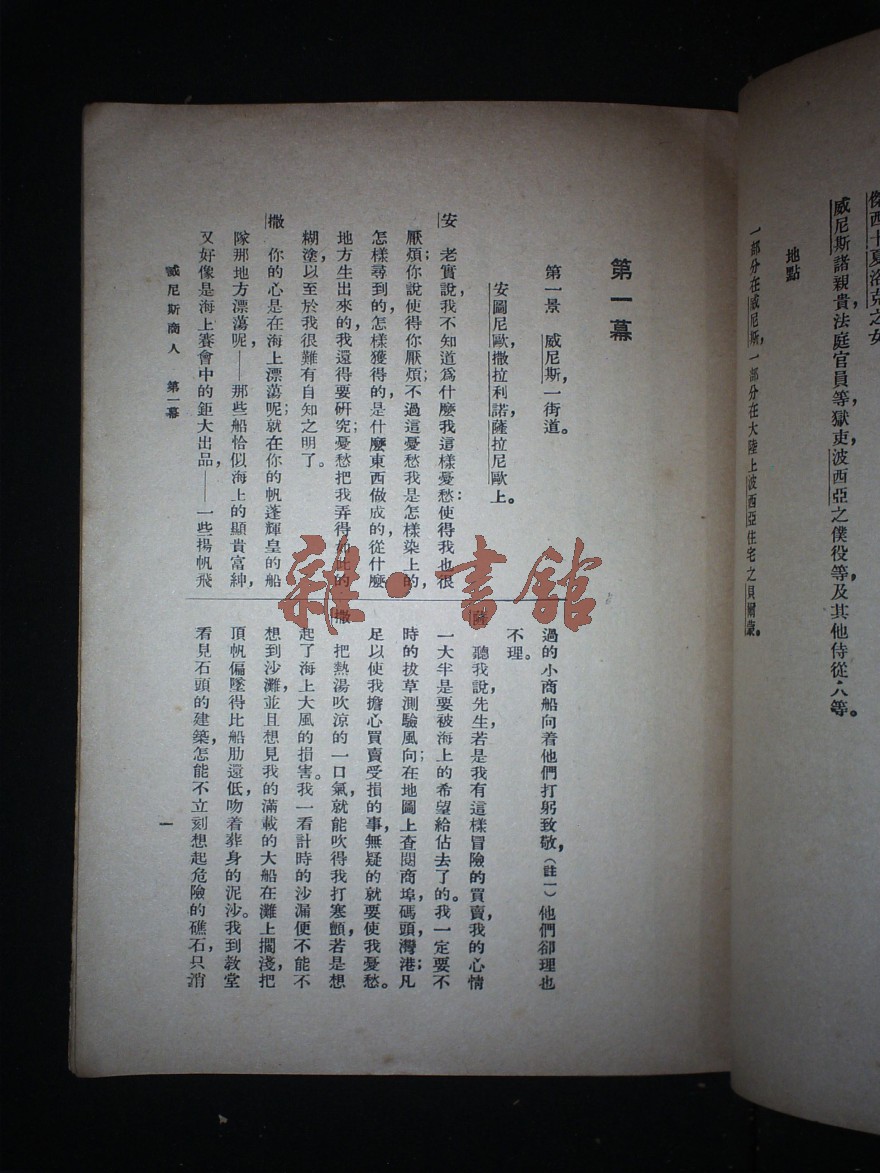 傑西卡夏洛克之女
威尼斯諸親貴,法庭官員等,獄吏,波西亞之僕役等,及其他侍從人等。
地點
一部分在威尼斯,一部分在大陸上波西亞住宅之貝爾蒙。
第一幕
第一景 威尼斯,一街道。
安圖尼歐,撒拉利諾,薩拉尼歐上。
安 老實說,我不知道爲什麼我這樣憂愁:使得我也很
厭煩;你說使得你厭煩;不過這憂愁我是怎樣染上的,
怎樣尋到的,怎樣獲得的,是什麼東西做成的,從什麼
地方生出來的,我還得要研究;憂愁把我弄得如此的
糊塗,以至於我很難有自知之明了。
撒 你的心是在海上漂蕩呢;就在你的帆蓬輝皇的船
隊那地方漂蕩呢,——那些船恰似海上的顯貴富紳,
又好像是海上賽會中的鉅大出品,——一些揚帆飛
過的小商船向着他們打躬致敬,(註一)他們卻理也
不理。
薩 聽我說,先生,若是我有這樣冒險的買賣,我的心情
一大半是要被海上的希望給佔去了的。我一定要不
時的拔草測驗風向;在地圖上查閱商埠,碼頭,灣港;凡
足以使我擔心買賣受損的事,無疑的就要使我憂愁。
撒 把熱湯吹涼的一口氣,就能吹得我打寒顫,若是想
起了海上大風的損害。我一看計時的沙漏便不能不
想到沙灘,並且想見我的滿載的大船在灘上擱淺,把
頂帆偏墜得比船肋還低,吻着葬身的泥沙。我到敎堂
看見石頭的建築,怎能不立刻想起危險的礁石,只消
威尼斯商人 第一幕
一
雜·書館